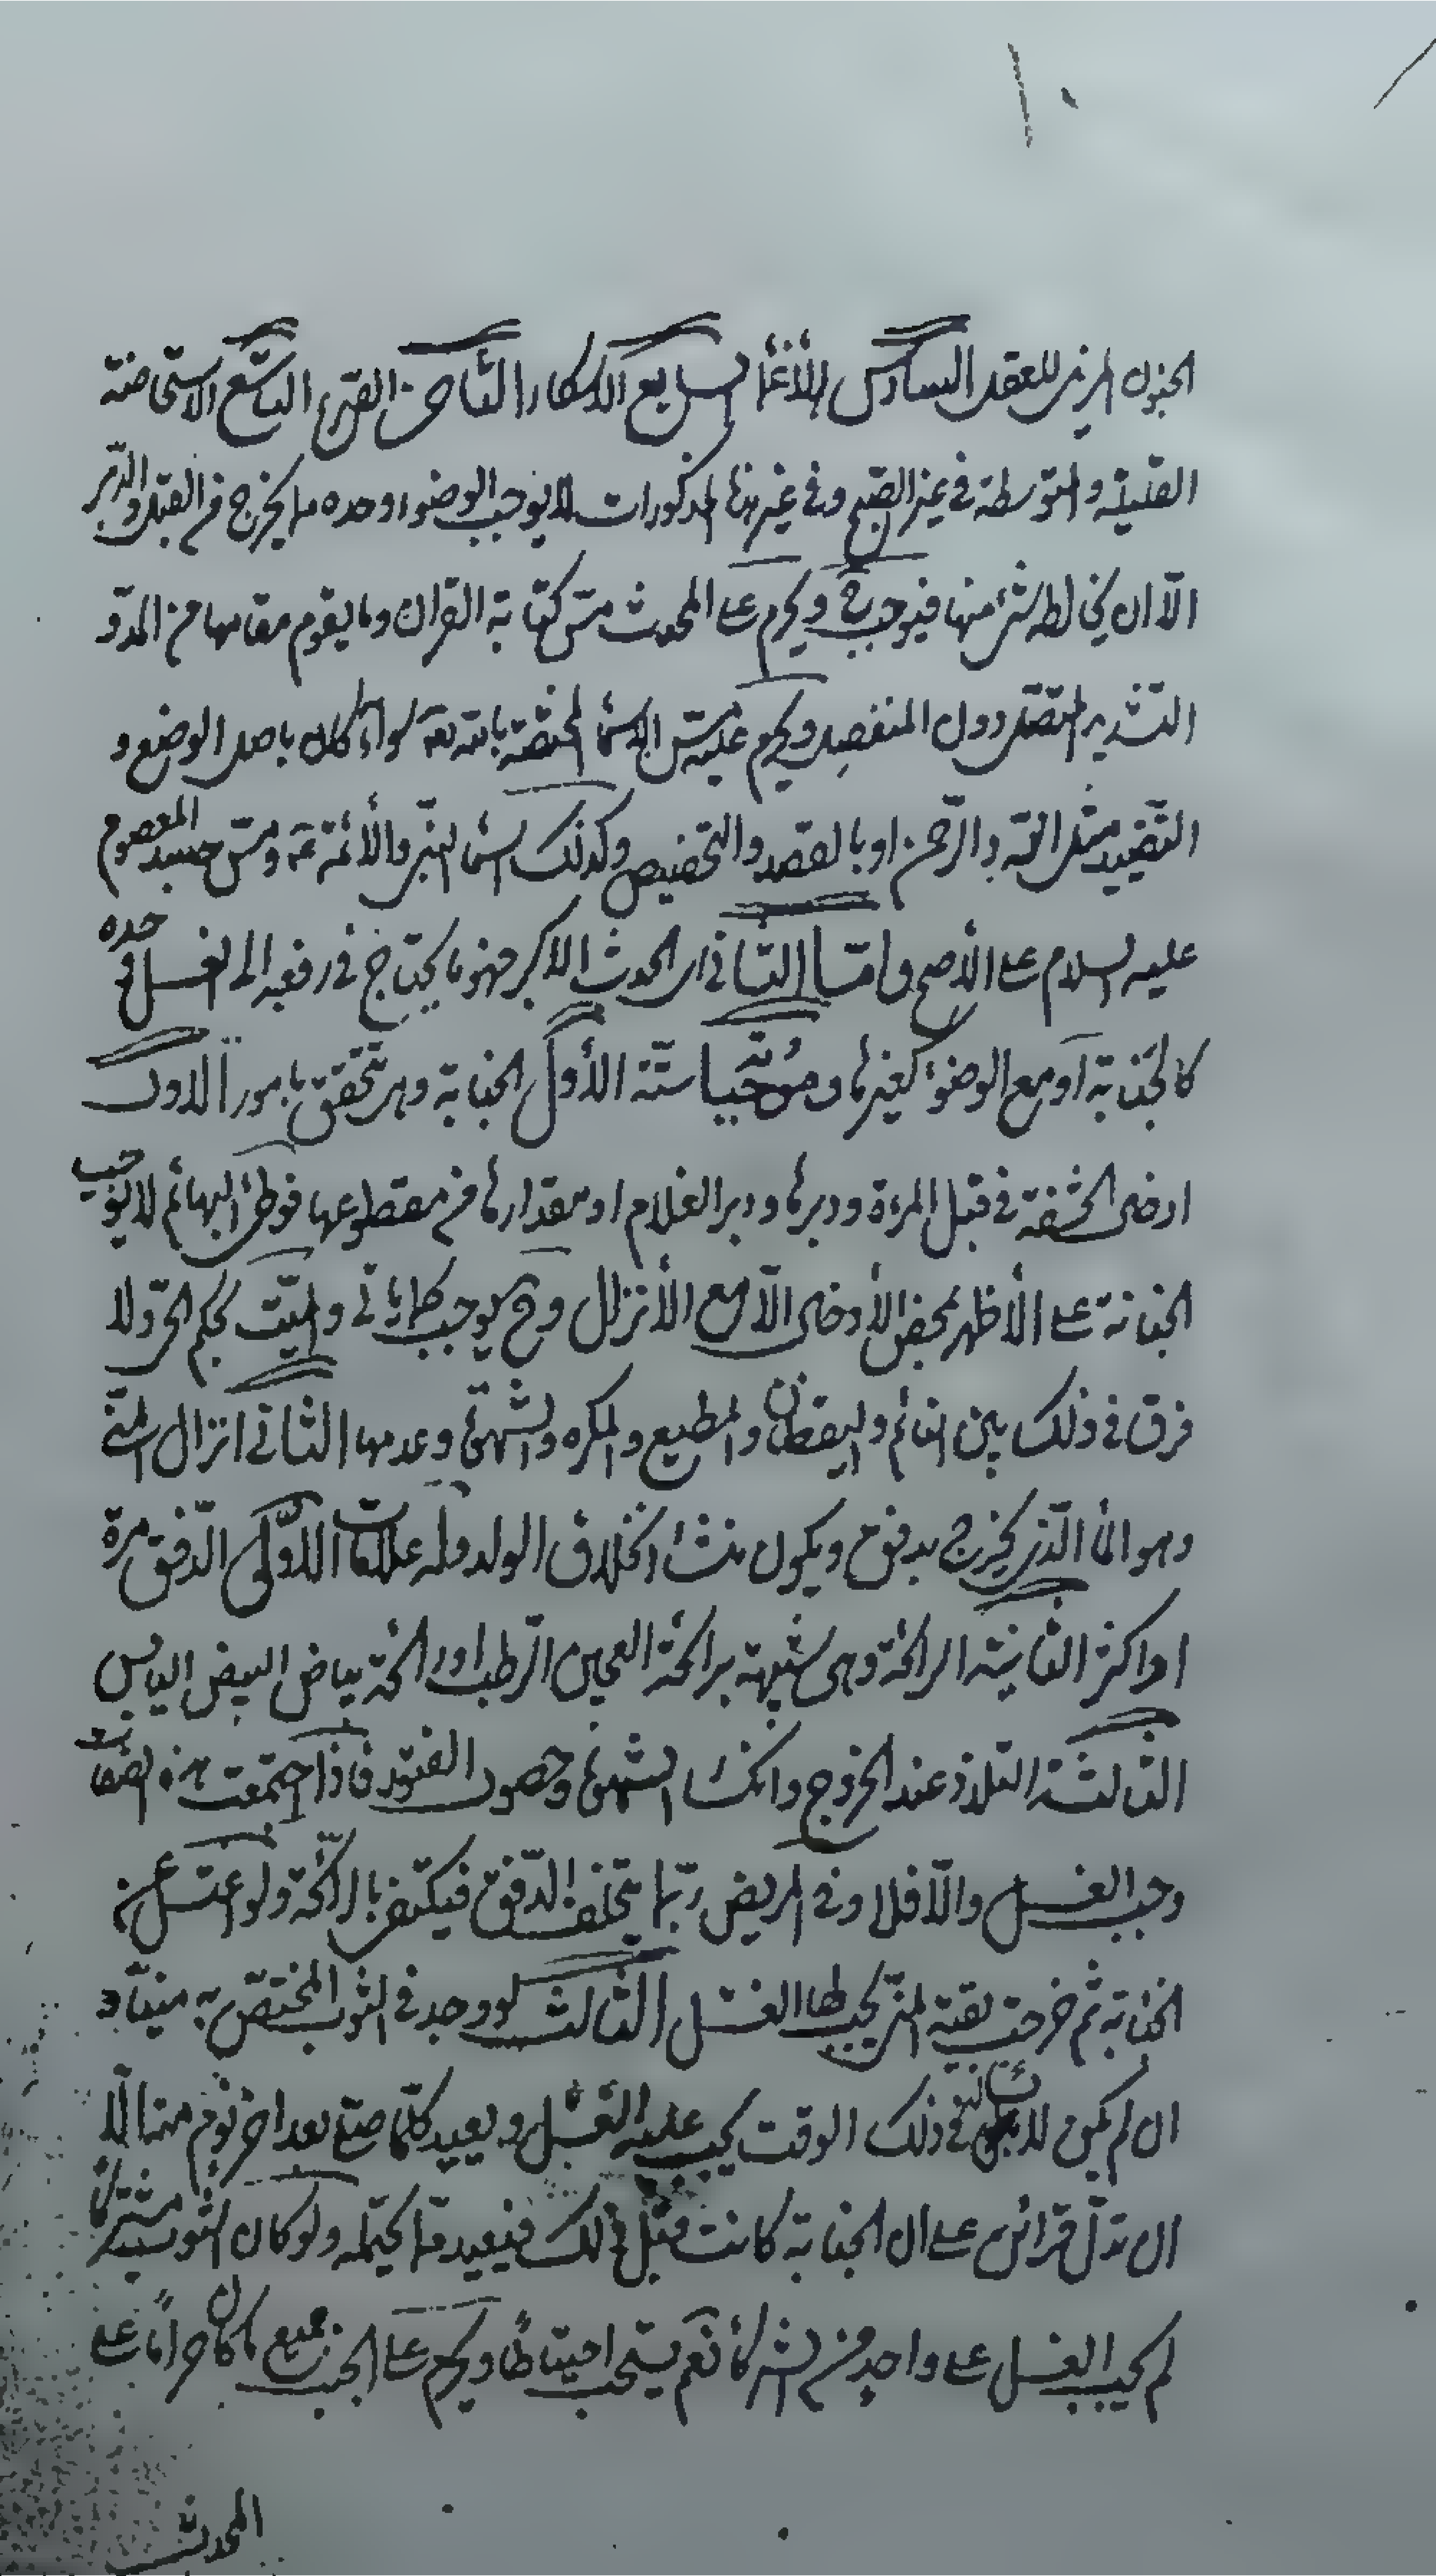 الجنون المزيل للعقل السادس الأغماء السابع الاسكار الثامن القئ التاسع الاستحاضة
القليلة والمتوسطة في غير الصبح وفي غير هذه المذكورات لا يوجب الوضوء وحده ما يخرج من القبل والدبر
الّا ان يخالطه شئ منها فيوجب ح ويحرم على المحدث مسّ كتابة القران وما يقوم مقامها من المدّ و
التشديد المتصل دون المنفصل ويحرم عليه مسّ الاسماء المختصّة بالله تعالى سواء كان باصل الوضع و
التقييد مثل الله والرّحمن او بالقصد والتخصيص وكذلك اسماء النبىّ والأئمّة ع ومسّ جسد المعصوم
عليه السلام على الأصح وامّا الثانى اى الحدث الاكبر فهو ما يحتاج فى رفعه الى الغسل وحده
كالجنابة أو مع الوضوء كغيرها وموجباته ستّة الأول الجنابة وهى تتحقق بامور الاول
ادخال الحشفة فى قبل المرءة ودبرها ودبر الغلام او مقدارها من مقطوعها فوطئ البهائم لا يوجب
الجنابة على الأظهر بمحض الأدخال الّا مع الأنزال وح يوجب كما يأتى والميّت بحكم الحىّ ولا
فرق فى ذلك بين النائم واليقظان والمطيع والمكره والشهوة وعدمها الثانى انزال المنى
وهو الماء الّذى يخرج بدفق ويكون منشأ اختلاق الولد وله علامات الاوّلى الدّفق مرة
او اكثر الثانية الرائحة وهى شبيهة برائحة العجين الرّطب او رائحة بياض البيض اليابس
الثالثة التلذذ عند الخروج وانكسار الشهوة وحصول الفتور فاذا اجتمعت هذه الصفات
وجب الغسل والّا فلا وفى المريض ربّما يتخلف الدّفق فيكتفى بالرائحة ولو اغتسل عن
الجنابة ثم خرجت بقية المنىّ يجب لها الغسل الثالث لو وجد فى الثوب المختصّ به منيّاً و
ان لم يكن لابس فى ذلك الوقت يجب عليه الغسل ويعيد كلّما صلّى بعد اخر نوم منها الّا
ان تدلّ قرائن على ان الجنابة كانت قبل ذلك فيعيد ما يحتمله ولو كان الثوب مشتركاً
لم يجب الغسل على واحد من الشركاء نعم يستحب احتياطاً ويحرم على الجنب جميع ما كان حراماً على
المحدث